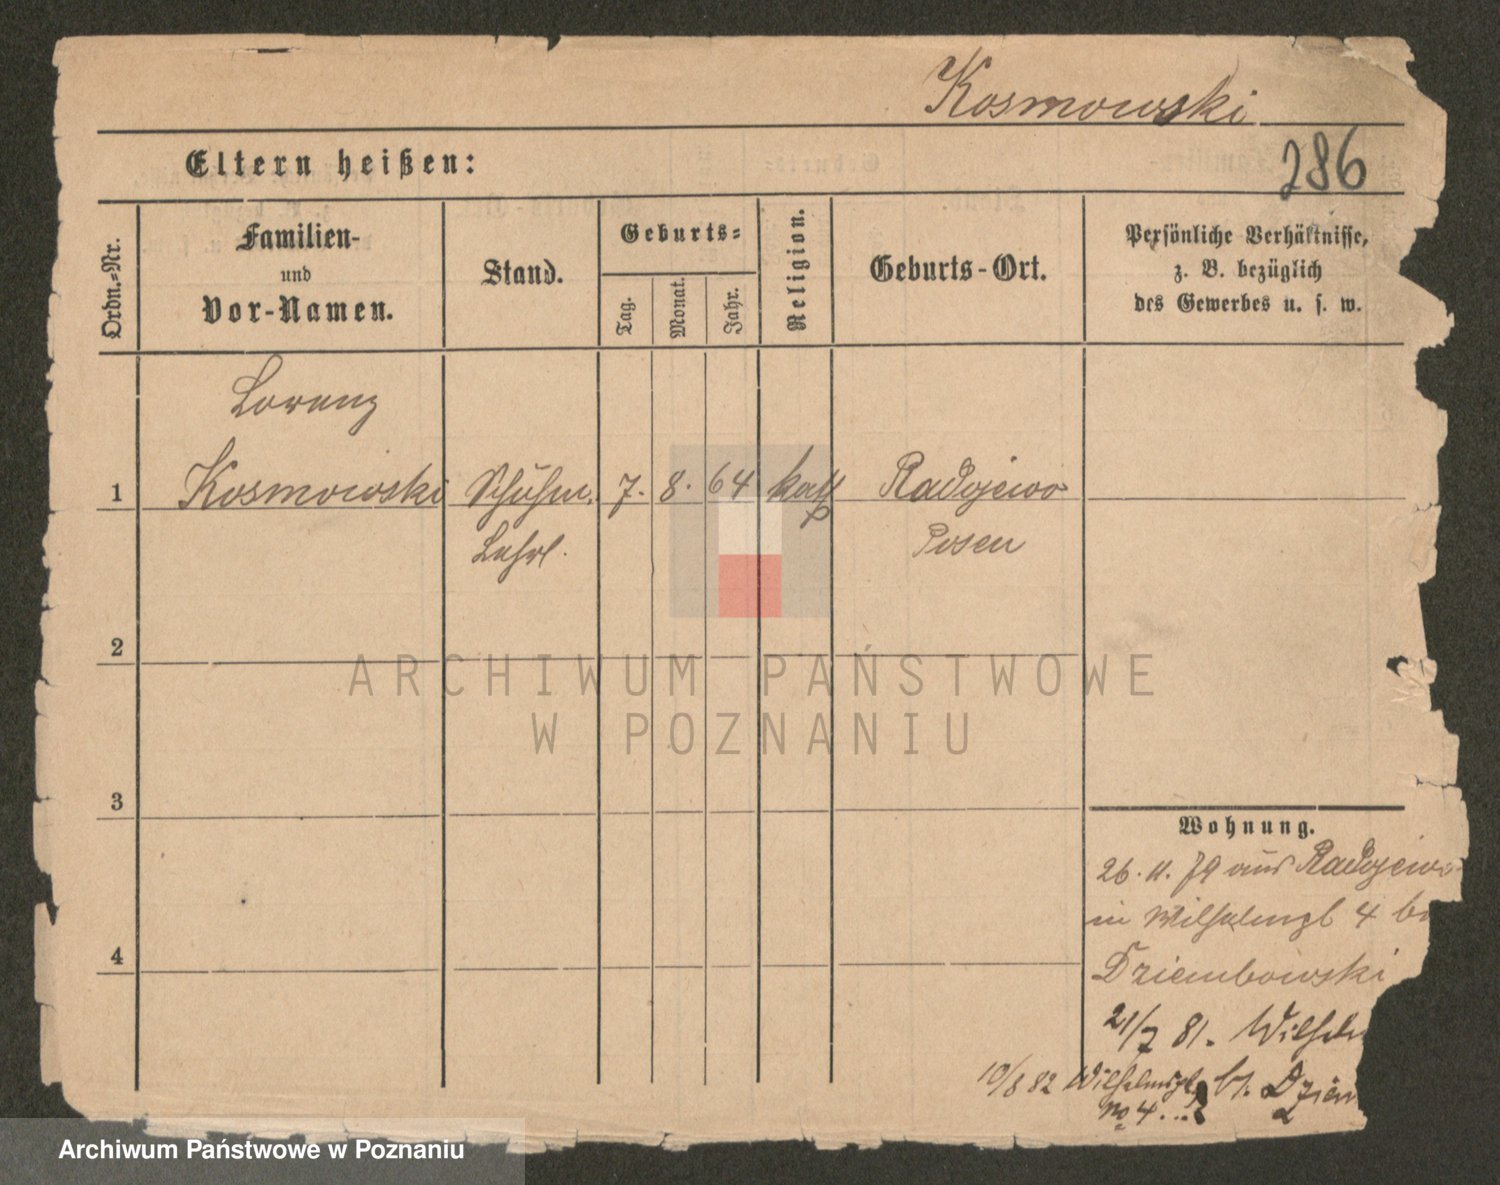 Kosmowski
286
Eltern heißen:
Ordn.-Nr.
Familien-
und
Vor-Namen.
Stand.
Geburts-
Tag.
Monat.
Jahr.
Religion.
Geburts-Ort.
Persönliche Verhältnisse,
z. B. bezüglich
des Gewerbes u. s. w.
Lorenz
1 Kosmowski Schuhm. 7. 8. 64 kath Radojewo
Lehrl. Posen
2
3
4
Wohnung.
26. 11. 79 aus Radojewo
in Wilhelmspl 4 bei
Dziembowski
21/7 81. Wilhelm
10/8 82 Wilhelmspl b. Dziem
No 4...
ARCHIWUM PAŃSTWOWE
W POZNANIU
Archiwum Państwowe w Poznaniu